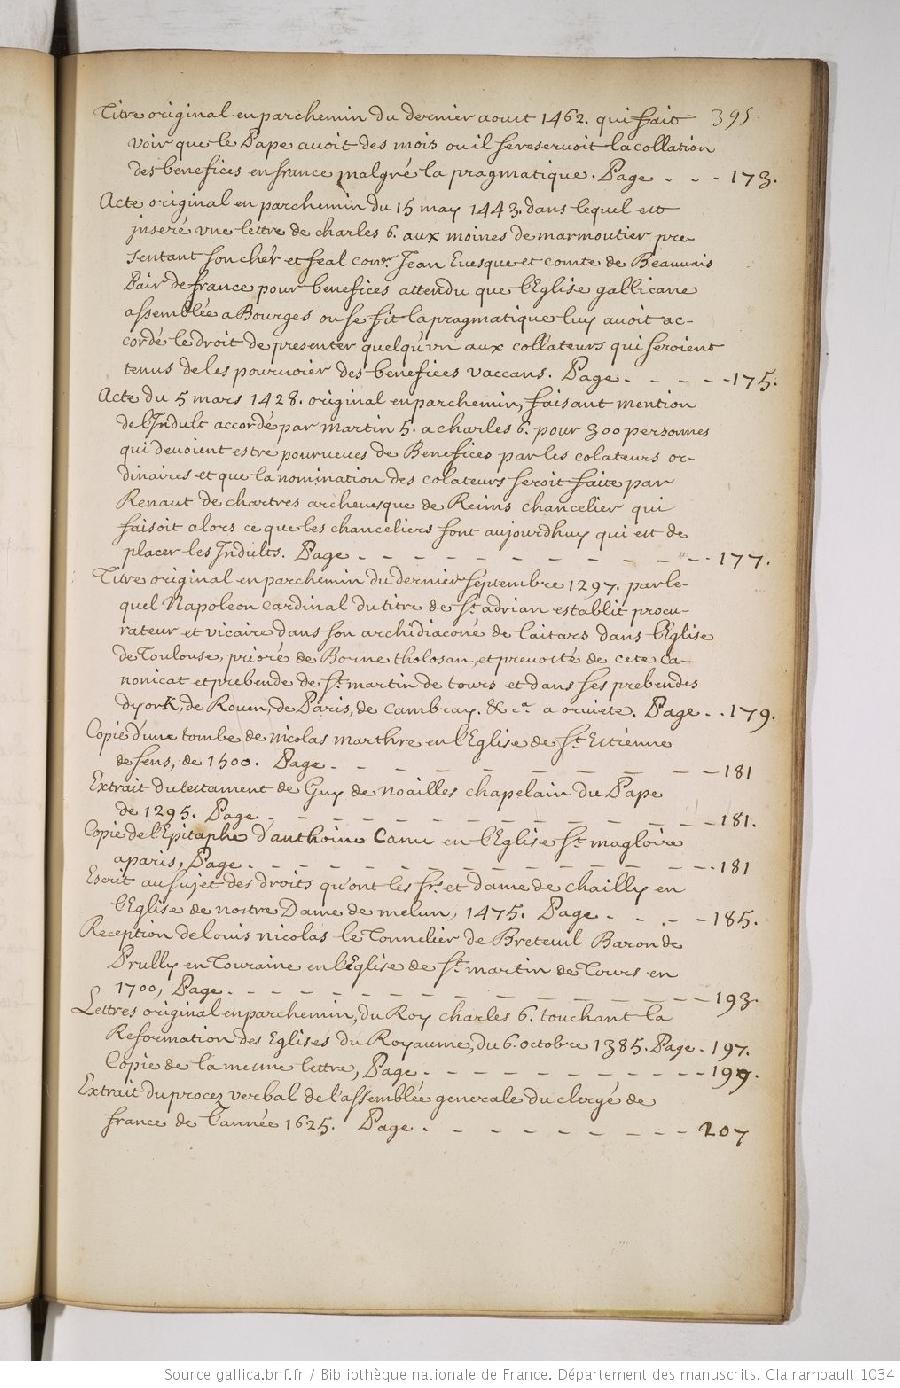 395
Titre original en parchemin du dernier aoust 1462. qui fait
voir que le Pape avoit des mois ou il se reservoit la collation
des benefices en france malgré la pragmatique. Page - - - 173.
Acte original en parchemin du 15 may 1443. dans lequel est
inseré vne lettre de charles 6. aux moines de marmoutier pre-
sentant son cher et feal conr. Jean Evesque et comte de Beauvais
Pair de france pour benefices attendu que l'Eglise gallicane
assemblée a Bourges ou se fit la pragmatique luy avoit ac-
cordé le droit de presenter quelqu'vn aux collateurs qui seroient
tenus de les pourvoir des benefices vaccans. Page - - - - - 175.
Acte du 5 mars 1428. original en parchemin, faisant mention
de l'Indult accordé par martin 5. a charles 6. pour 300 personnes
qui devoient estre pourvues de Benefices par les colateurs or-
dinaires et que la nomination des colateurs seroit faite par
Renaut de chartres archevesque de Reims chancelier qui
faisoit alors ce que les chanceliers font aujourdhuy qui est de
placer les Indults. Page - - - - - - - - - - 177.
Titre original en parchemin du dernier septembre 1297. par le-
quel Napoleon cardinal du titre de St. adrian establit procu-
rateur et vicaire dans son archidiaconé de laitars dans l'Eglise
de Toulouse, prioré de Borne tholosan, et prevosté de cete ca-
nonicat et prebende de St. martin de tours et dans ses prebendes
dyork, de Rouen, de Paris, de Cambray. &ca. a orviete. Page - - 179.
Copie d'une tombe de nicolas marthre en l'Eglise de St. Estienne
de Sens, de 1500. Page - - - - - - - - - - 181
Extrait du testament de Guy de noailles chapelain du Pape
de 1295. Page - - - - - - - - - - - 181.
Copie de l'Epitaphe d'anthoine Canu en l'Eglise St. magloire
a paris, Page - - - - - - - - - - - 181
Escrit au sujet des droits qu'ont les srs. et dame de chailly en
l'Eglise de nostre Dame de melun, 1475. Page - - - - 185.
Reception de louis nicolas le Tonnelier de Breteuil Baron de
Prully en Touraine en l'Eglise de St. martin de Tours en
1700, Page - - - - - - - - - - - - 193.
Lettres original en parchemin, du Roy charles 6. touchant la
Reformation des Eglises du Royaume, du 6. octobre 1385. Page - 197.
Copie de la mesme lettre, Page - - - - - - - - - 199.
Extrait du procez verbal de l'assemblée generale du clergé de
france de l'année 1625. Page - - - - - - - - 207
Source gallica.bnf.fr / Bibliothèque nationale de France. Département des manuscrits. Clairambault 1034